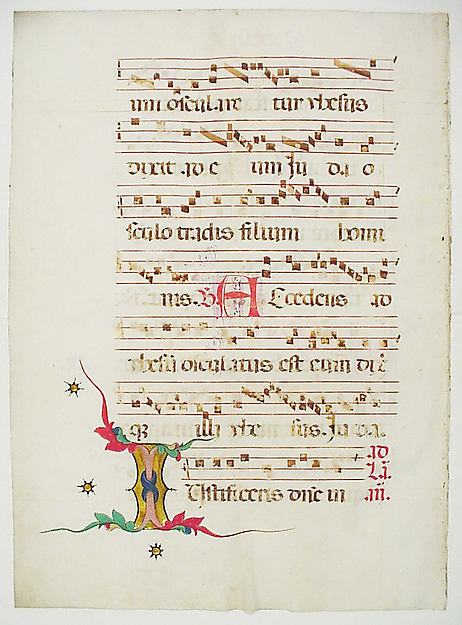 um osculare tur yhesus
dixit ad e um Iu da o
sculo tradis filium homi
nis. V Accedens ad
yhesū osculatus est eum dix̄
q3 illi yhe sus. Iuda.
Iustificeris dn̄e in
ad
La.
an̄.